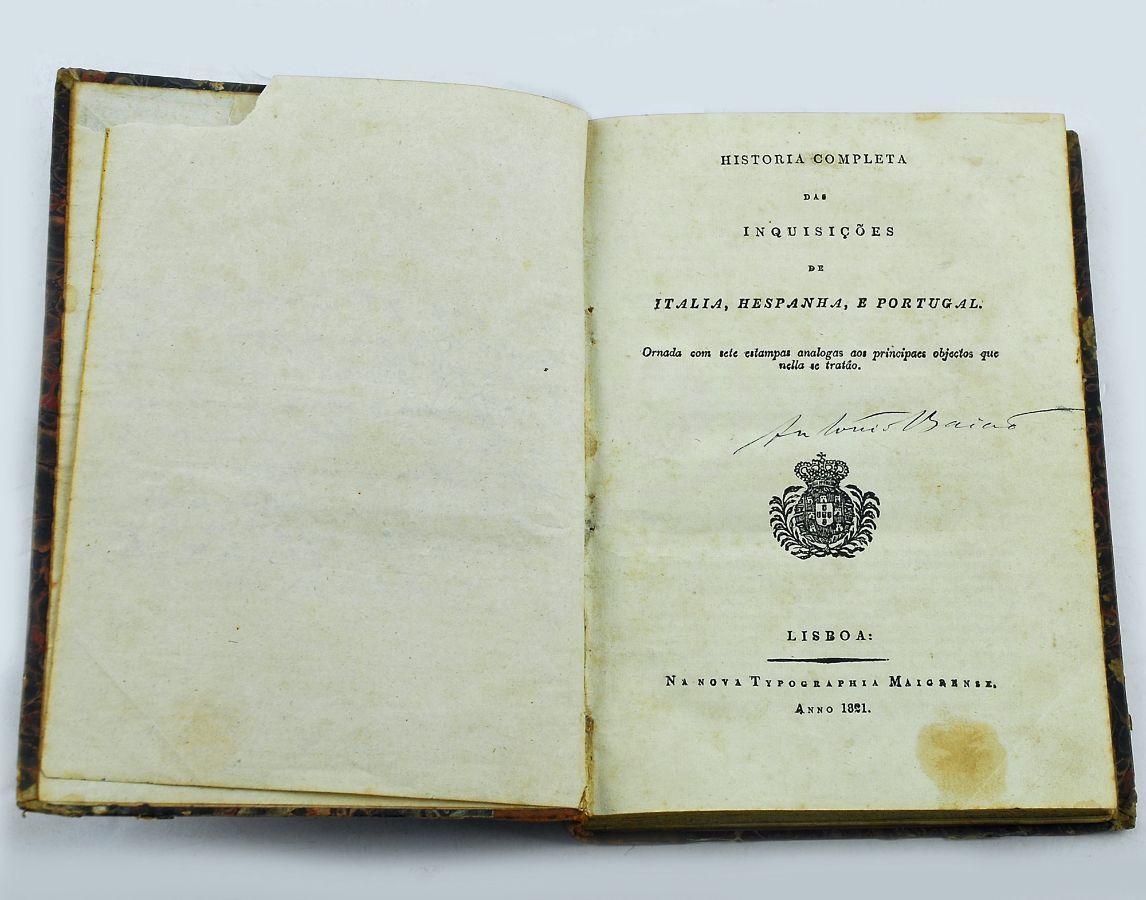 HISTORIA COMPLETA
DAS
INQUISIÇÕES
DE
ITALIA, HESPANHA, E PORTUGAL.
Ornada com sete estampas analogas aos principaes objectos que
nella se tratão.
Antonio Baião
LISBOA:
NA NOVA TYPOGRAPHIA MAIGRENSE.
ANNO 1821.